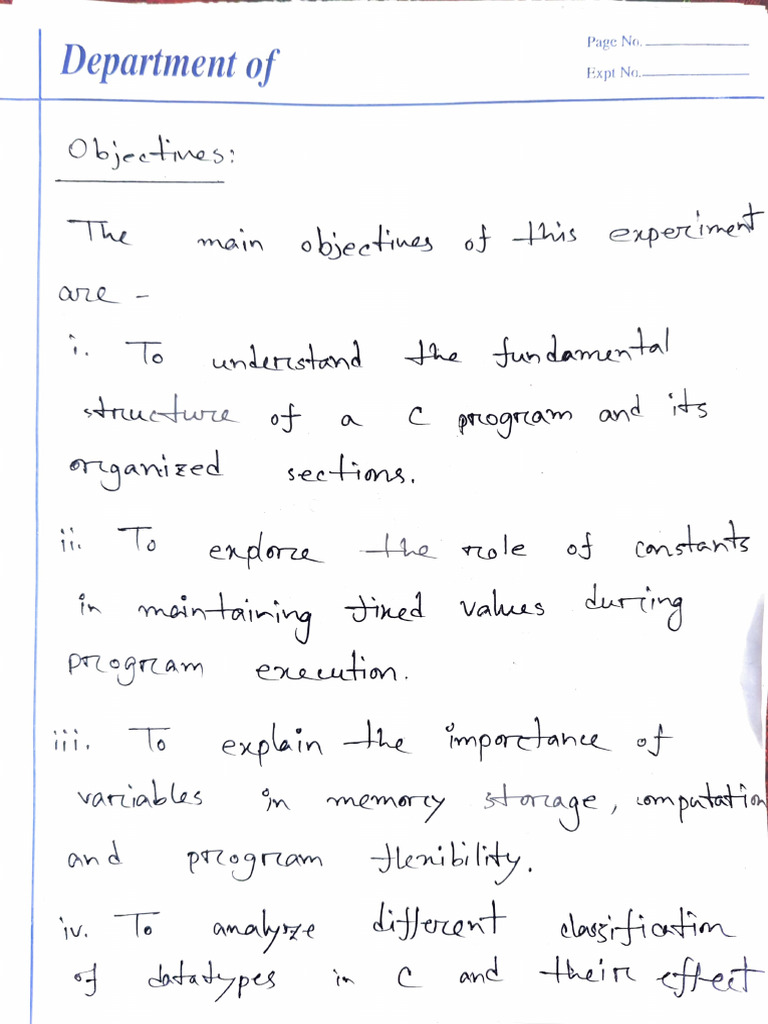 Department of
Page No.
Expt No.
Objectives:
The main objectives of this experiment
are -
i. To understand the fundamental
structure of a C program and its
organized sections.
ii. To explore the role of constants
in maintaining fixed values during
program execution.
iii. To explain the importance of
variables in memory storage, computation
and program flexibility.
iv. To analyze different classification
of datatypes in C and their effect